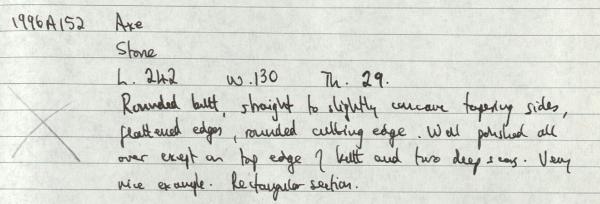 1996A152 Axe
Stone
L. 242 W. 130 Th. 29.
Rounded butt, straight to slightly concave tapering sides,
flattened edges, rounded cutting edge. Well polished all
over except on top edge of butt and two deep scars. Very
nice example. Rectangular section.